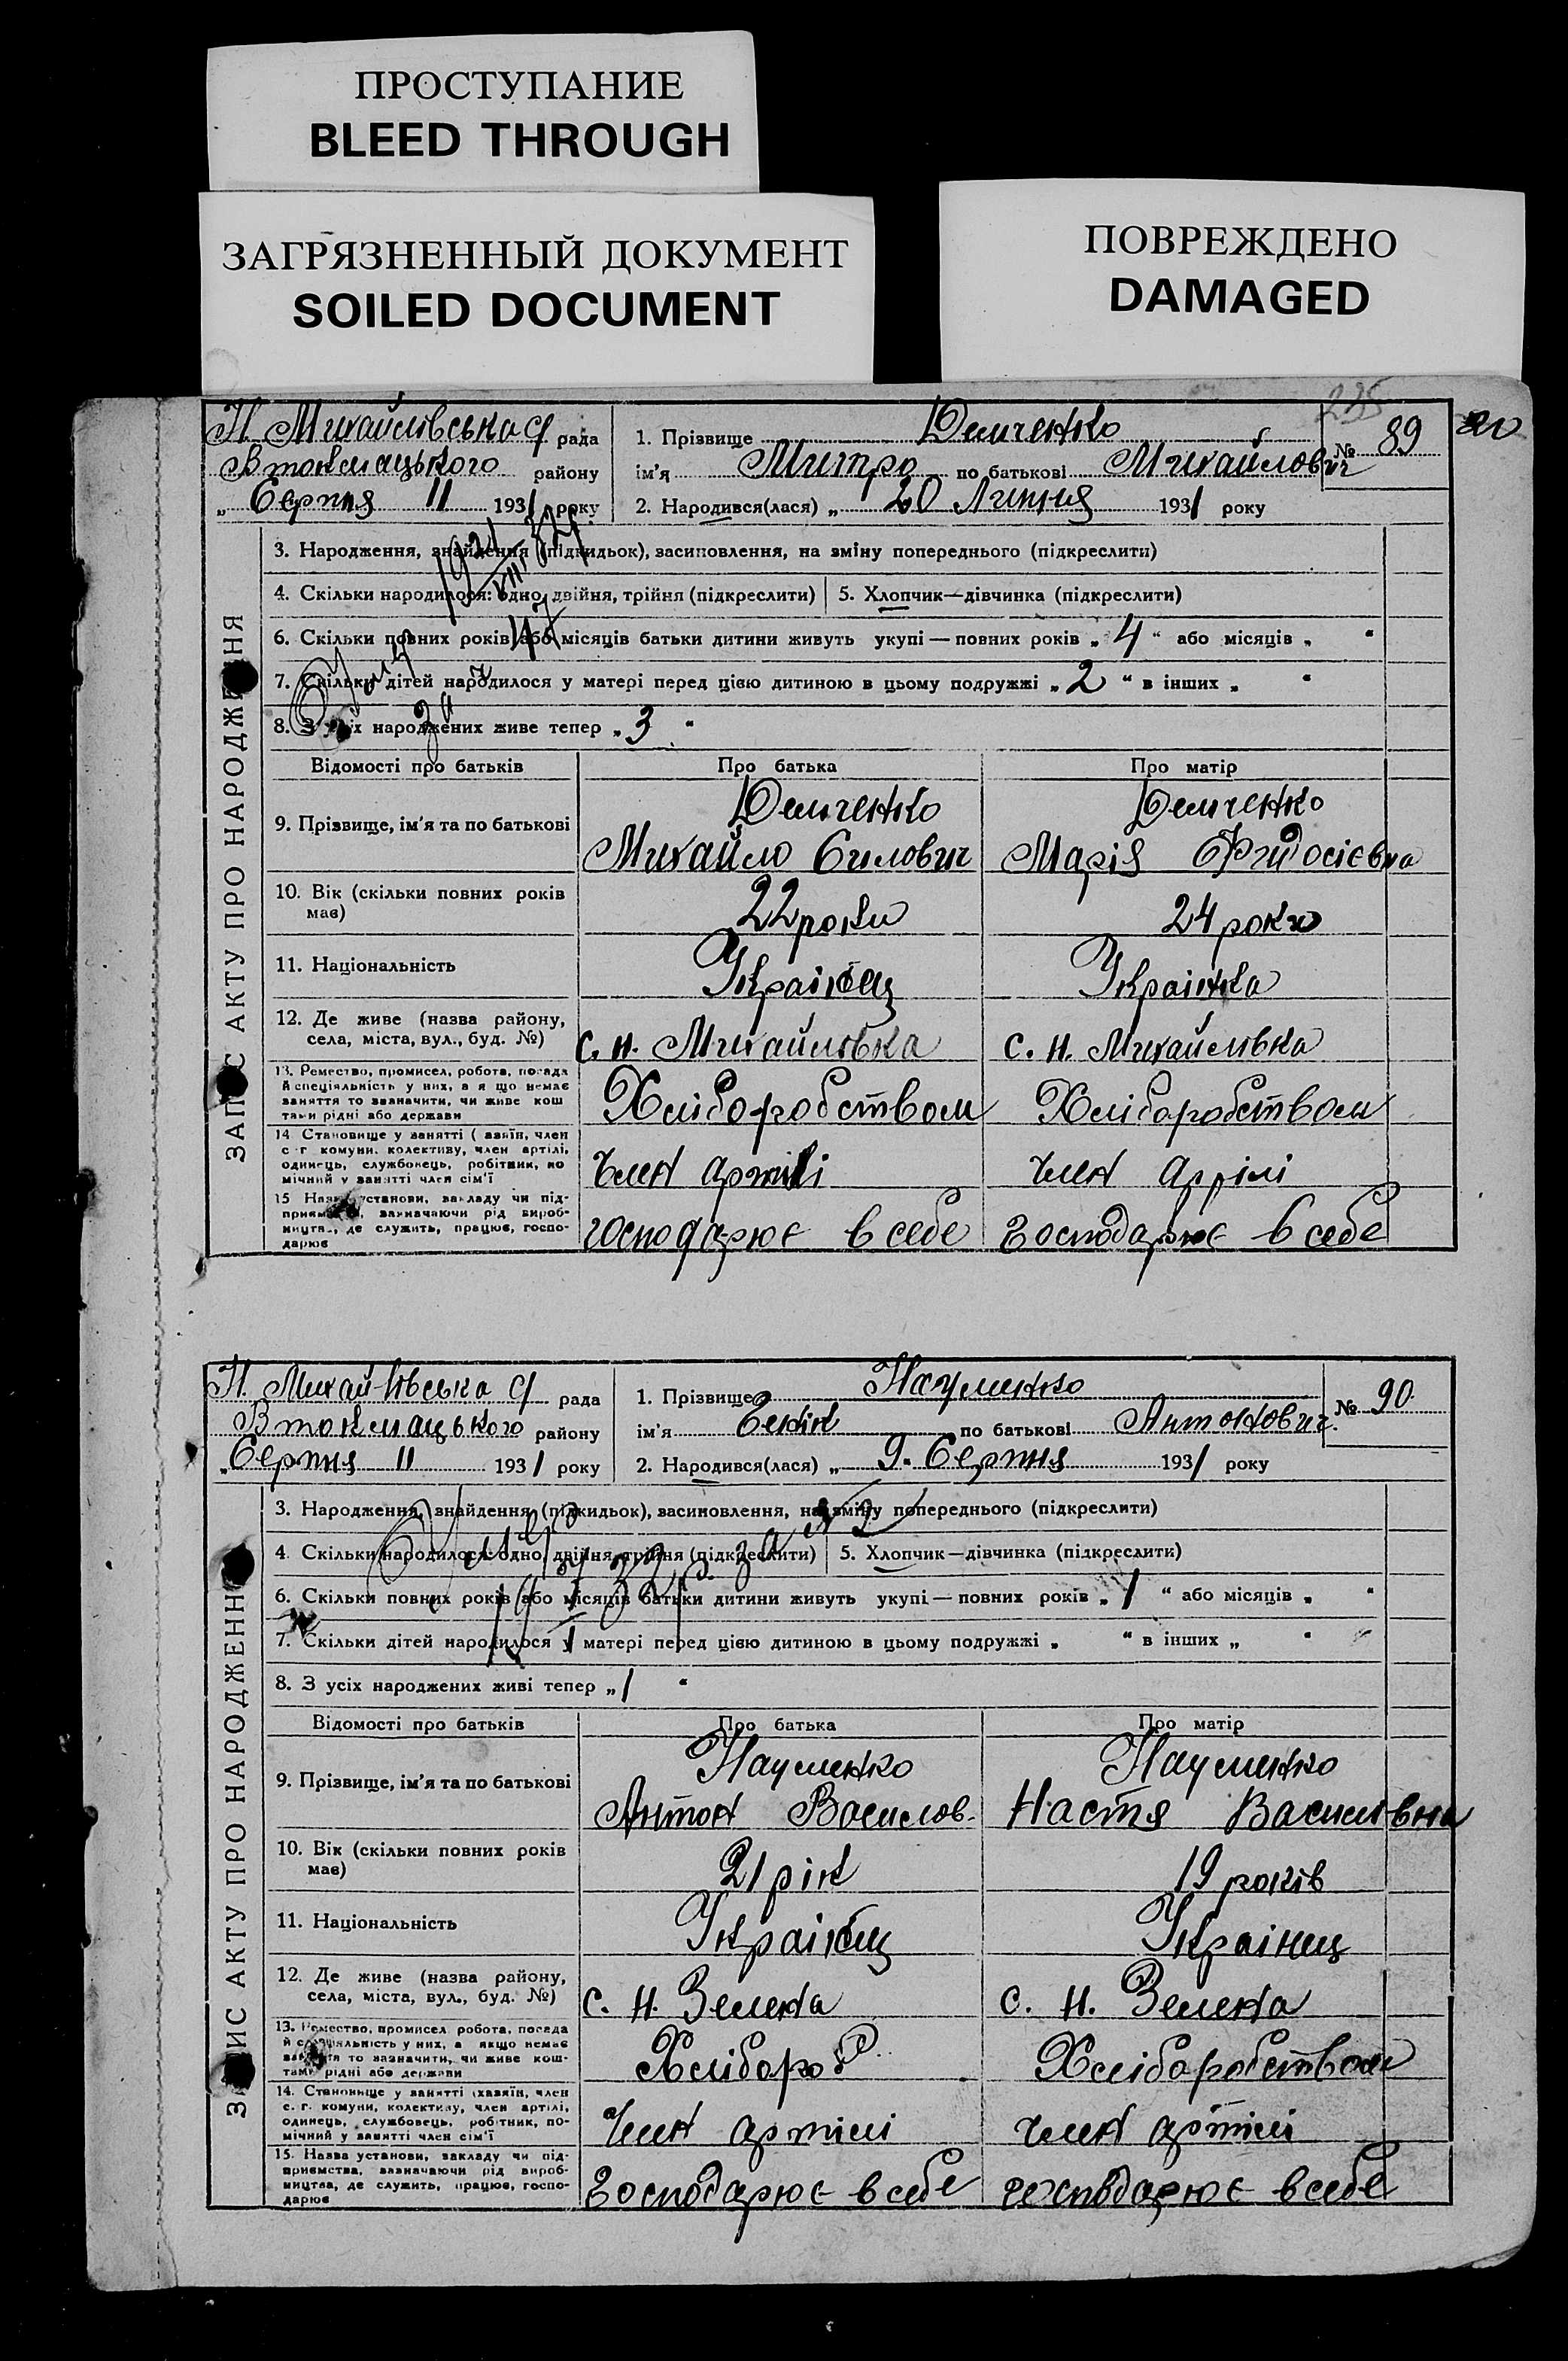 ПРОСТУПАНИЕ
BLEED THROUGH
ЗАГРЯЗНЕННЫЙ ДОКУМЕНТ
SOILED DOCUMENT
ПОВРЕЖДЕНО
DAMAGED
235
ЗАПИС АКТУ ПРО НАРОДЖЕННЯ
Н. Михайлівська с/ рада
В токмацького району
„ Серпня 11 1931 року
1. Прізвище Демченко
№ 89
ім'я Митро по батькові Михайлович
2. Народився(лася) „ 20 Липня 1931 року
3. Народження, знайдення (підкидьок), засиновлення, на зміну попереднього (підкреслити)
4. Скільки народилося: одно, двійня, трійня (підкреслити) 5. Хлопчик—дівчинка (підкреслити)
6. Скільки повних років або місяців батьки дитини живуть укупі — повних років „ 4 “ або місяців „ “
7. Скільки дітей народилося у матері перед цією дитиною в цьому подружжі „ 2 “ в інших „ “
8. З усіх народжених живе тепер „ 3 “
Відомості про батьків Про батька Про матір
9. Прізвище, ім'я та по батькові
Демченко Демченко
Михайло Силович Марія
10. Вік (скільки повних років має)
22 роки 24 роки
11. Національність
Українец Українка
12. Де живе (назва району, села, міста, вул., буд. №)
с. н. Михайлівка с. н. Михайлівка
13. Ремество, промисел, робота, посада й спеціяльність у них, а я що немає заняття то зазначити, чи живе кош тами рідні або держави
Хліборобством Хліборобством
14 Становище у занятті ( азяїн, член с г комуни, колективу, член артілі, одинець, службовець, робітник, по мічний у занятті член сім'ї
Член артілі член артілі
15 Назва установи, закладу чи підприємства, зазначаючи рід виробництва, де служить, працює, господарює
господарює в себе господарює в себе
ЗАПИС АКТУ ПРО НАРОДЖЕННЯ
Н. Михайлівська с/ рада
В токмацького району
„ Серпня 11 1931 року
1. Прізвище Науменко
№ 90
ім'я по батькові Антонович
2. Народився(лася) „ 9. Серпня 1931 року
3. Народження, знайдення (підкидьок), засиновлення, на зміну попереднього (підкреслити)
4. Скільки народилося: одно, двійня, трійня (підкреслити) 5. Хлопчик—дівчинка (підкреслити)
6. Скільки повних років (або місяців батьки дитини живуть укупі — повних років „ 1 “ або місяців „ “
7. Скільки дітей народилося у матері перед цією дитиною в цьому подружжі „ “ в інших „ “
8. З усіх народжених живі тепер „ 1 “
Відомості про батьків Про батька Про матір
9. Прізвище, ім'я та по батькові
Науменко Науменко
Антон Василов. Настя Василівна
10. Вік (скільки повних років має)
21 рік 19 років
11. Національність
Українец Українец
12. Де живе (назва району, села, міста, вул., буд. №)
с. н. Зелена с. н. Зелена
13. Ремество, промисел робота, посада й спеціяльність у них, а якщо немає заняття то зазначити, чи живе коштами рідні або держави
Хлібороб Хліборобством
14. Становище у занятті (хазяїн, член с. г. комуни, колективу, член артілі, одинець, службовець, робітник, помічний у занятті член сім'ї
Член артілі член артілі
15. Назва установи, закладу чи підприємства, зазначаючи рід виробництва, де служить, працює, господарює
господарює в себе господарює в себе